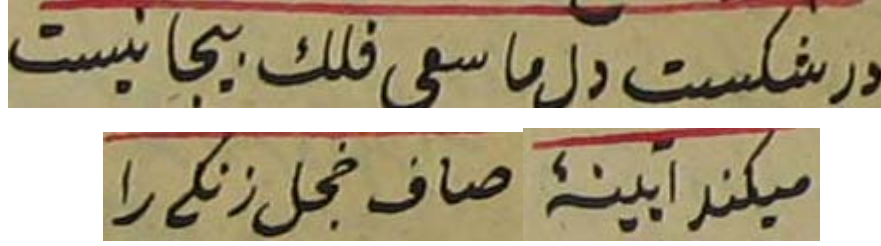 در شکست دل ما سعی فلک بیجا نیست
میکند آیینهٔ صاف خجل زنگی را